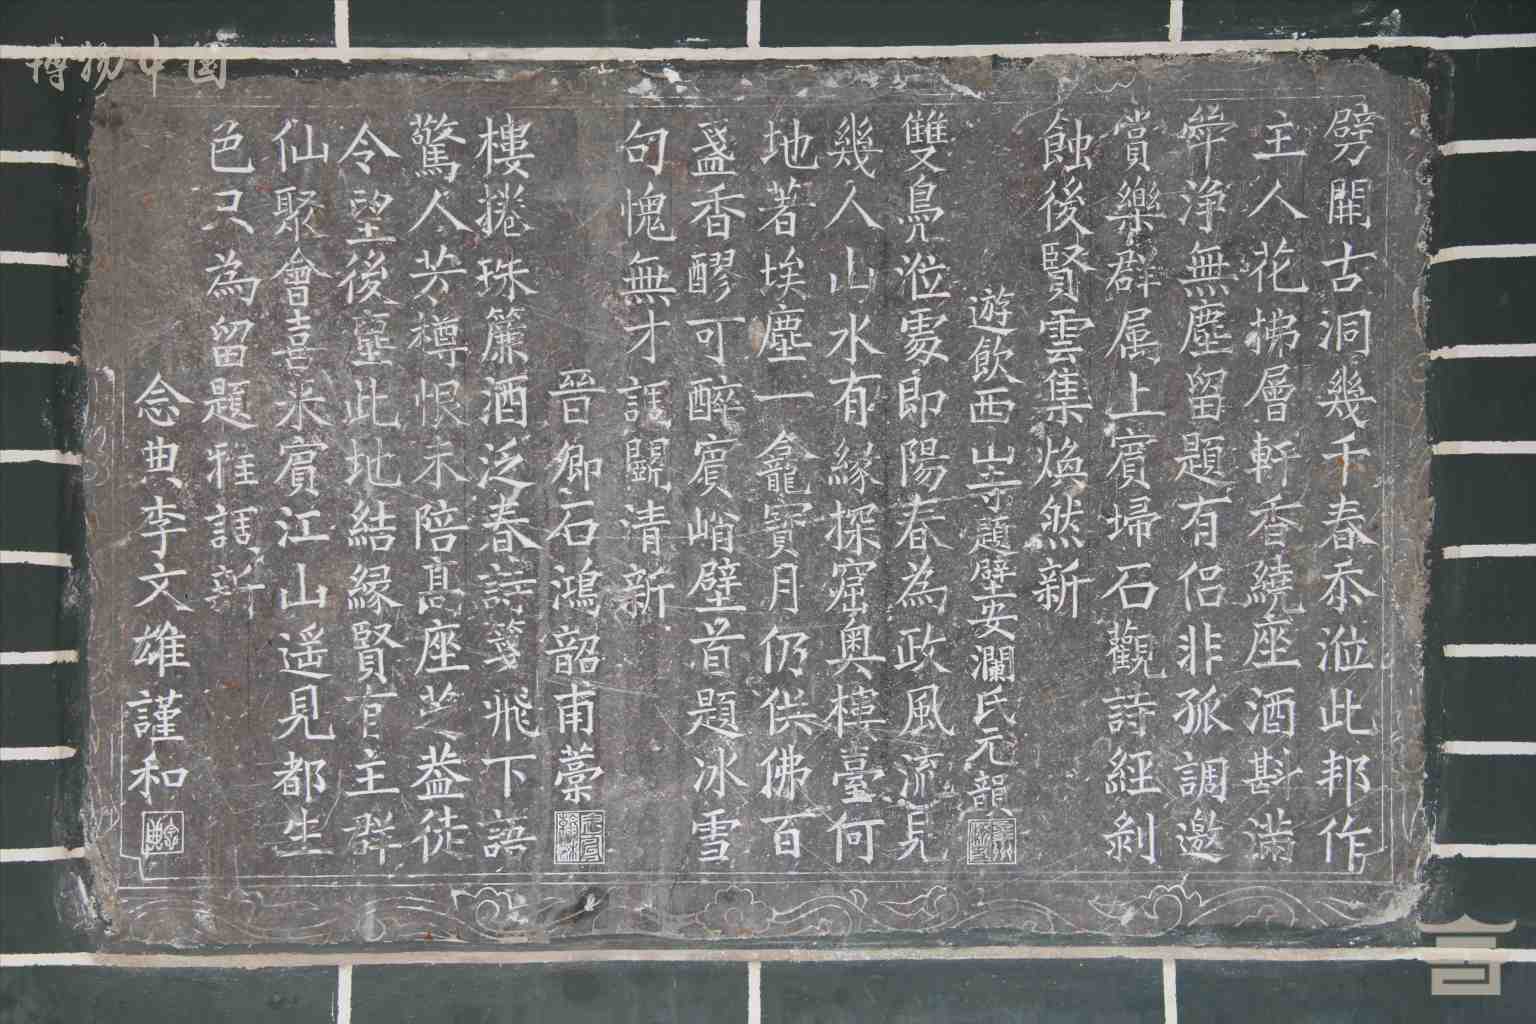 博物中國
劈開古洞幾千春忝涖此邦作
主人花拂層軒香繞座酒斟滿
斝淨無塵留題有侶非孤調邀
賞樂群属上賓歸石觀詩經剝
蝕後賢雲集煥然新
遊飲西山寺題壁安瀾氏元韻
雙鳧涖處即陽春為政風流見
幾人山水有緣探窟奧樓臺何
地著埃塵一龕寶月仍供佛百
盞香醪可醉賓峭壁首題冰雪
句愧無才調鬭清新
晉卿石鴻韶甫藳
樓捲珠簾酒泛春詩箋飛下語
驚人芳樽恨未陪高座芝葢徒
令望後塵此地結緣賢有主群
仙聚會喜來賓江山遥見都生
色只為留題雅調新
念典李文雄謹和
念典